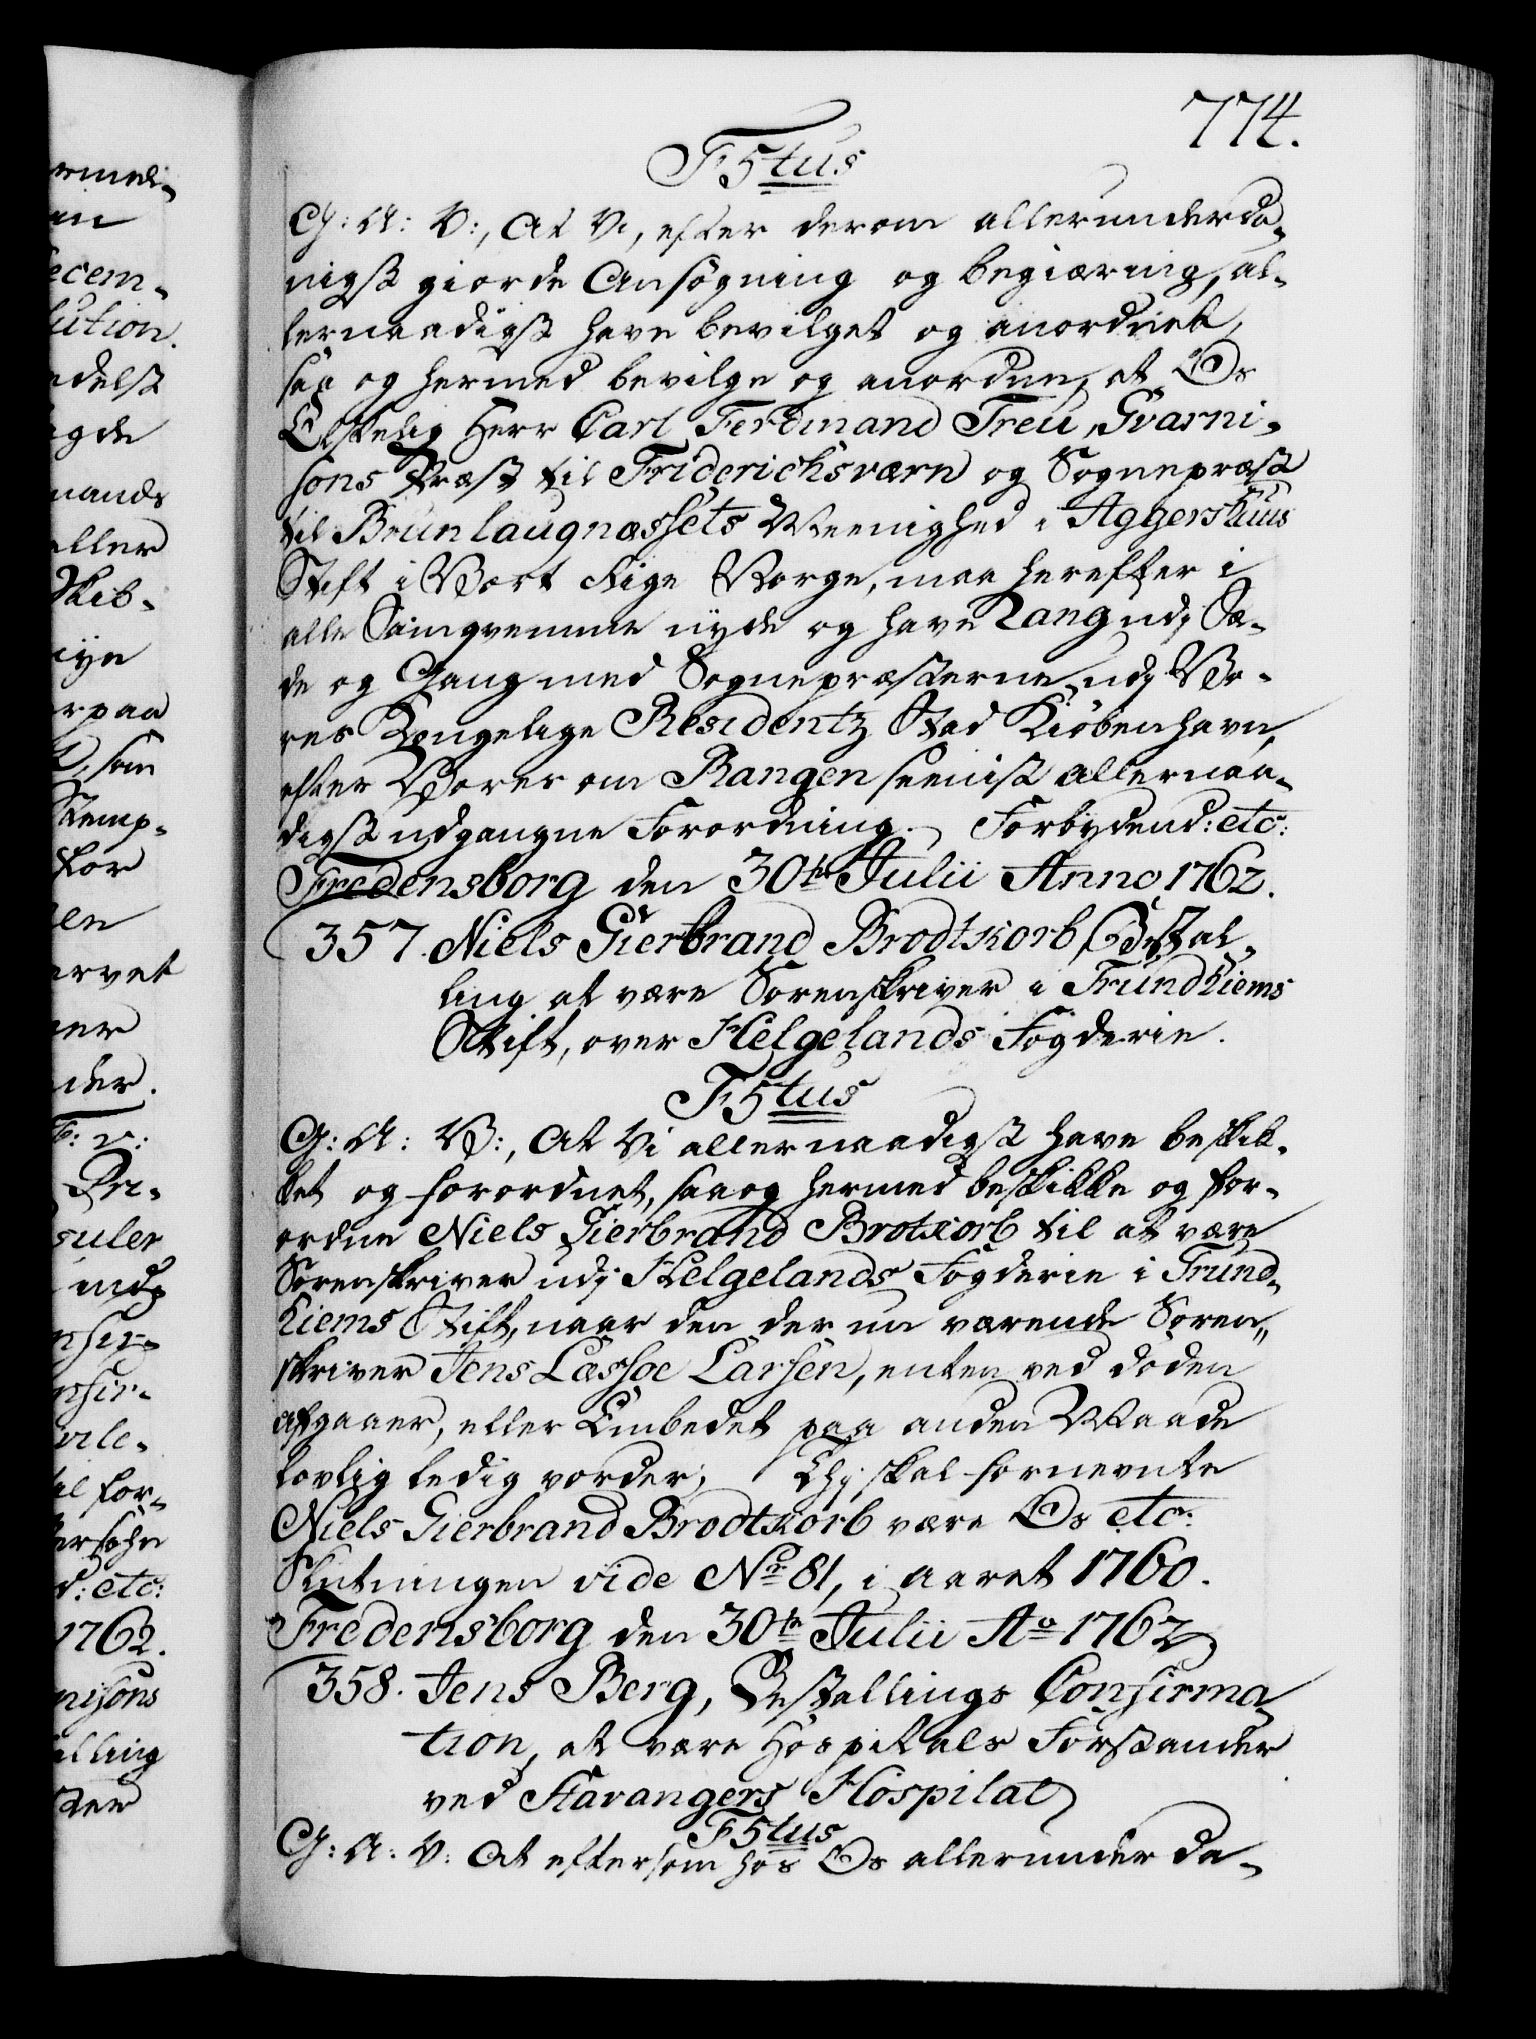 774.
F5tus
G: A: V:, At Vi, efter derom allerunderda-
nigst giorde Ansøgning og begiæring, al-
lernaadigst have bevilget og anordnet,
saa og hermed bevilge og anordne, at Os
Elskelig Herr Carl Ferdinand Treu, Gvarni-
sons Præst til Friderichsværn og Sognepræst
til Brunlaugnæssets Meenighed i Aggershuus
Stift i Vort Rige Norge, maa herefter i
alle Samqvemme nyde og have Rang udj Sæ-
de og Gang med Sognepræsterne udj Vo-
res Kongelige Residentz Stad Kiøbenhavn,
efter Vores om Rangen seenist allernaa-
digst udgangne Forordning. Forbydend: etc:
Fredensborg den 30te Julii Anno 1762.
357. Niels Gierbrand Brodtkorb Bestal-
ling at være Sorenskriver i Trundhiems
Stift, over Helgelands Fogderie.
F5tus
G: A: V:, At Vi allernaadigst have beskik-
ket og forordnet, saa og hermed beskikke og for-
ordne Niels Gierbrand Brotkorb til at være
Sorenskriver udj Helgelands Fogderie i Trund-
hiems Stift, naar den der nu værende Soren-
skriver Jens Læssøe Larsen, enten ved døden
afgaaer, eller Embedet paa anden Maade
lovlig ledig vorder; Thj skal fornevnte
Niels Gierbrand Brodtkorb være Os etc:
Slutningen vide No 81, i aaret 1760.
Fredensborg den 30te Julii Ao 1762
358. Jens Berg, Bestallings Confirma-
tion, at være Hospitals Forstander
ved Stavangers Hospital
F5tus
G: A: V: At eftersom hos Os allerunderda-